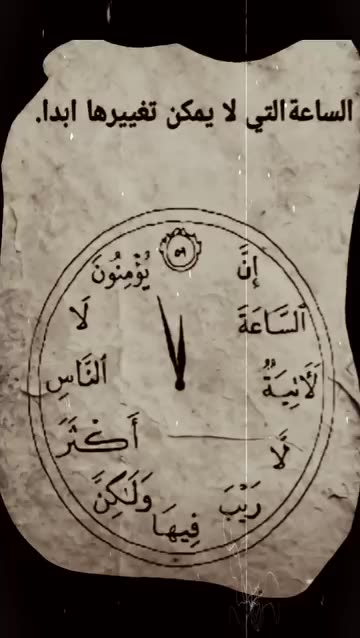 الساعة التي لا يمكن تغييرها ابدا.
٥٩
إِنَّ
ٱلسَّاعَةَ
لَأٓتِيَةٌ
لَّا
رَيْبَ
فِيهَا
وَلَٰكِنَّ
أَكْثَرَ
ٱلنَّاسِ
لَا
يُؤْمِنُونَ